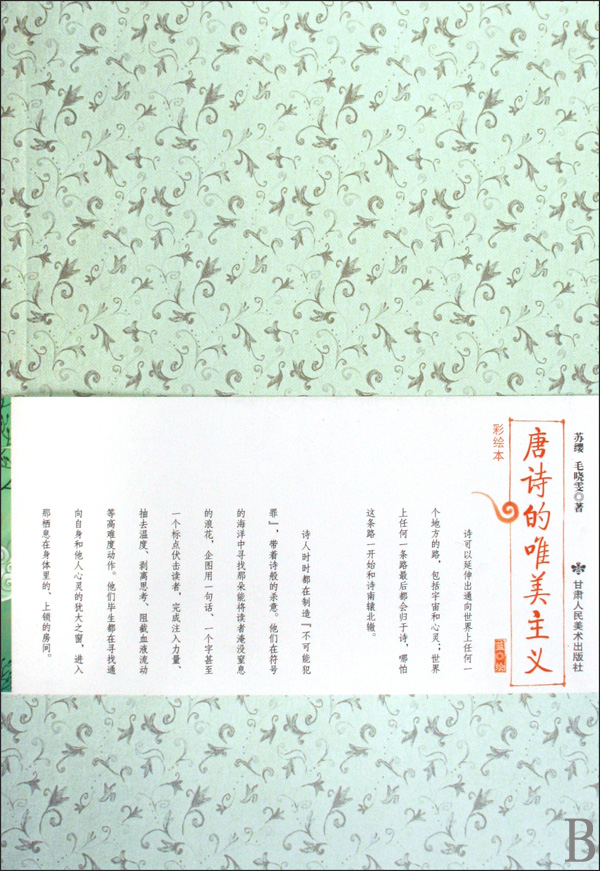 苏缨 毛晓雯◎著
甘肃人民美术出版社
唐诗的唯美主义
彩绘本
诗可以延伸出通向世界上任何一
个地方的路，包括宇宙和心灵；世界
上任何一条路最后都会归于诗，哪怕
这条路一开始和诗南辕北辙。
诗人时时都在制造『不可能犯
罪』，带着诗般的杀意。他们在符号
的海洋中寻找那朵能将读者淹没窒息
的浪花，企图用一句话、一个字甚至
一个标点伏击读者，完成注入力量、
抽去温度、剥离思考、阻截血液流动
等高难度动作。他们毕生都在寻找通
向自身和他人心灵的犹大之窗，进入
那栖息在身体里的、上锁的房间。
B